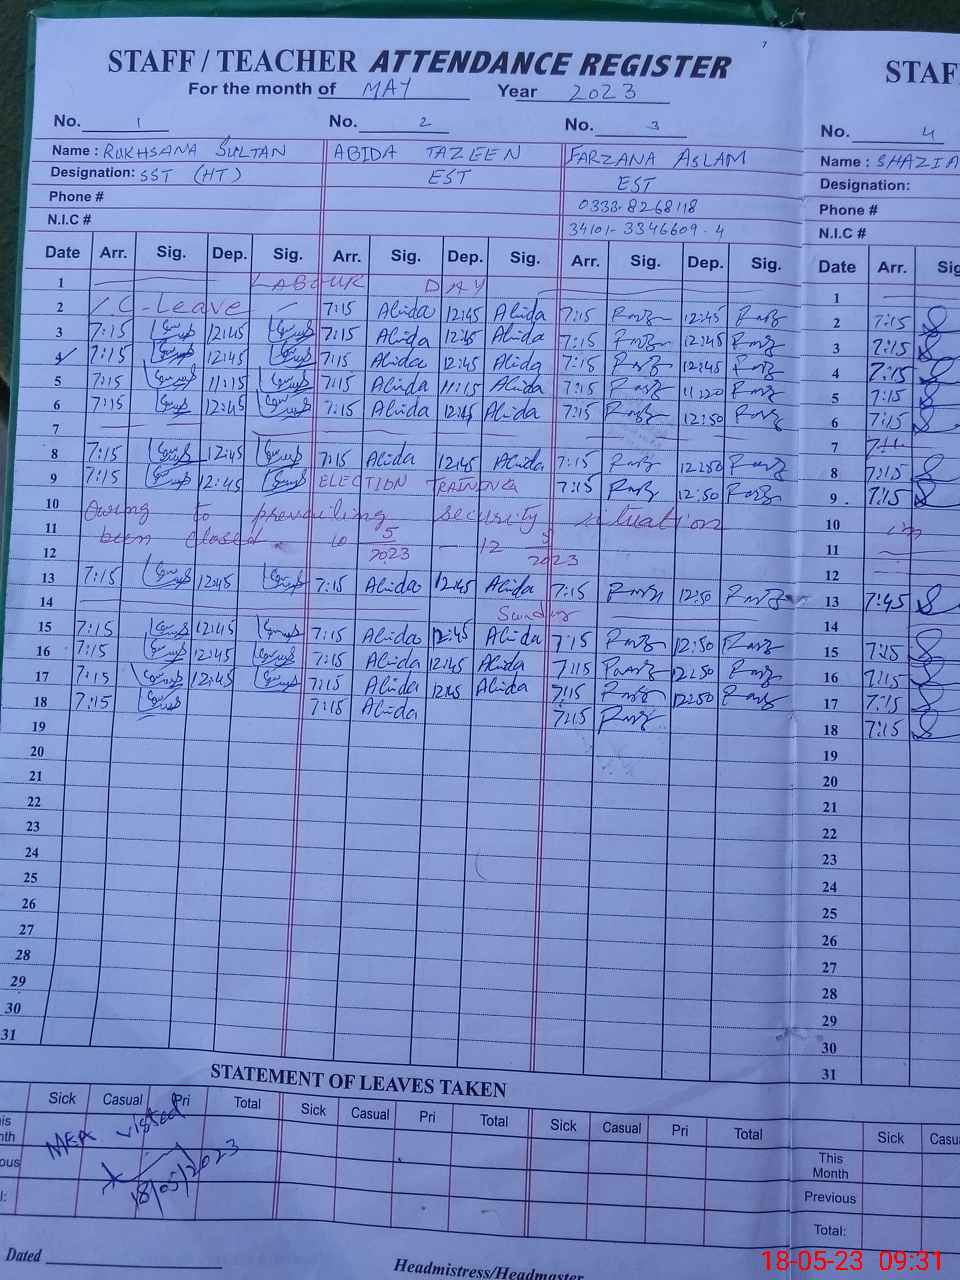 7
STAFF / TEACHER ATTENDANCE REGISTER
STAF
For the month of MAY Year 2023
No. 1 No. 2 No. 3 No. 4
Name : RUKHSANA SULTAN ABIDA TAZEEN FARZANA ASLAM Name : SHAZIA
Designation: SST (HT) EST EST Designation:
Phone # 0333-8268118 Phone #
N.I.C # 34101-3346609-4 N.I.C #
Date Arr. Sig. Dep. Sig. Arr. Sig. Dep. Sig. Arr. Sig. Dep. Sig. Date Arr. Sig
1 LABOUR DAY 1
2 C-Leave 7:15 Abida 12:45 Abida 7:15 12:45 2 7:15
3 7:15 12:45 7:15 Abida 12:45 Abida 7:15 12:45 3 7:15
4 7:15 12:45 7:15 Abida 12:45 Abida 7:15 12:45 4 7:15
5 7:15 11:15 7:15 Abida 11:15 Abida 7:15 11:20 5 7:15
6 7:15 12:45 7:15 Abida 12:45 Abida 7:15 12:50 6 7:15
7 7
8 7:15 12:45 7:15 Abida 12:45 Abida 7:15 12:50 8 7:15
9 7:15 12:45 ELECTION 7:15 12:50 9 7:15
10 Owing to prevailing security situation 10
11 been closed 10 5/2023 — 12 5/2023 11
12 12
13 7:15 12:45 7:15 Abida 12:45 Abida 7:15 12:50 13 7:45
14 Sunday 14
15 7:15 12:45 7:15 Abida 12:45 Abida 7:15 12:50 15 7:15
16 7:15 12:45 7:15 Abida 12:45 Abida 7:15 12:50 16 7:15
17 7:15 12:45 7:15 Abida 12:45 Abida 7:15 12:50 17 7:15
18 7:15 7:15 Abida 7:15 18 7:15
19 19
20 20
21 21
22 22
23 23
24 24
25 25
26 26
27 27
28 28
29 29
30 30
31 31
STATEMENT OF LEAVES TAKEN
Sick Casual Pri Total Sick Casual Pri Total Sick Casual Pri Total Sick Casu
This Month
Previous
Total:
MEA visited
18/05/2023
Dated
Headmistress/Headmaster
18-05-23 09:31